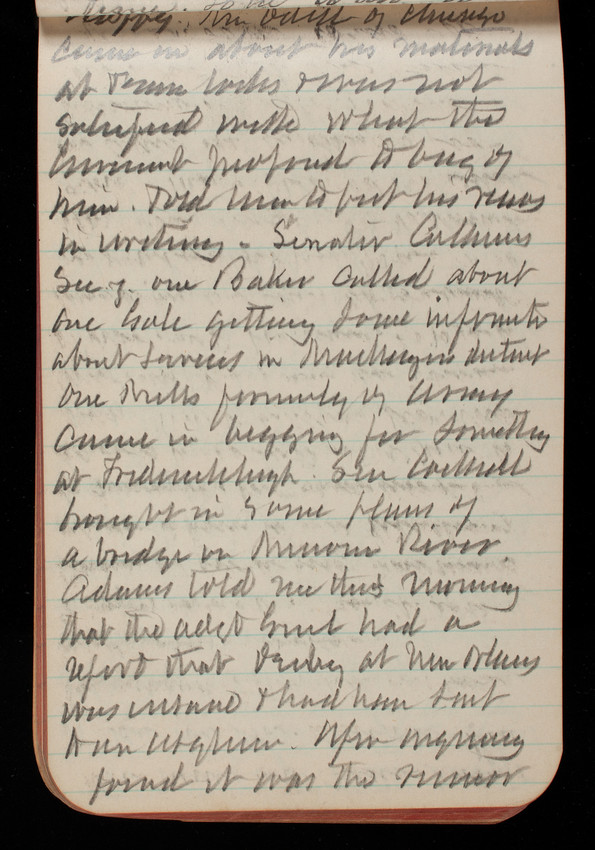 of Chicago
came in about his materials
at locks & was not
satisfied with what the
Government proposed to buy of
him. Told him to put his views
in writing. Senator Cullums
Secy. one Baker called about
one getting some informatn
about services in district
One Mills formerly of army
came in begging for something
at Fredericksburgh. Sen Cockrell
brought in some plans of
a bridge on Missouri River.
Adams told me this morning
that the adjt Genl had a
report that at New Orleans
was insane & had been sent
to an asylum. After inquiring
found it was the rumor